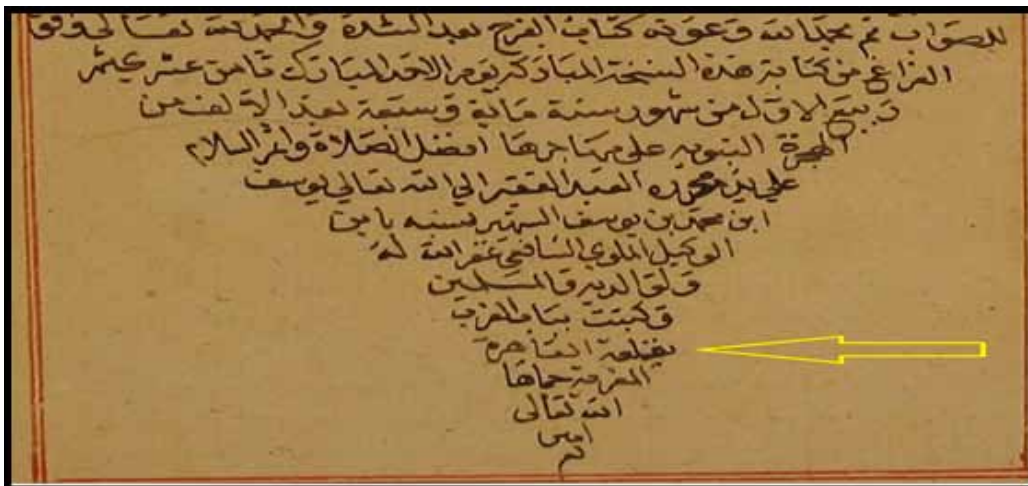 للصواب تم بحمد الله وعونه كتاب الفرج بعد الشدة والحمد لله تعالى وفق
الفراغ من كتابة هذه النسخة المباركة يوم الاحد المبارك ثامن عشر
ربيع الاول من شهور سنة ماية وسبعة بعد الالف من
الهجرة النبوية على مهاجرها افضل الصلاة واتم السلام
علي يد العبد الفقير الي الله تعالي يوسف
ابن محمد بن يوسف الشهير نسبه بابن
الوكيل الملوي الشافعي غفر الله له
ولوالديه والمسلمين
وكتبت بباب العزب
بقلعة القاهرة
المعزية حماها
الله تعالى
امين
م